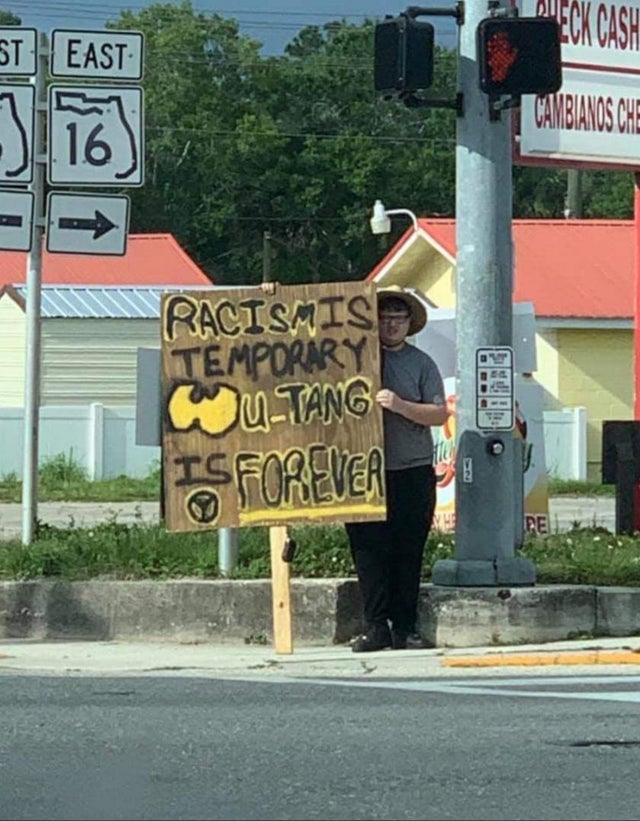 ST
EAST
16
CHECK CASH
CAMBIANOS CHE
RACISM IS
TEMPORARY
WU-TANG
IS FOREVER